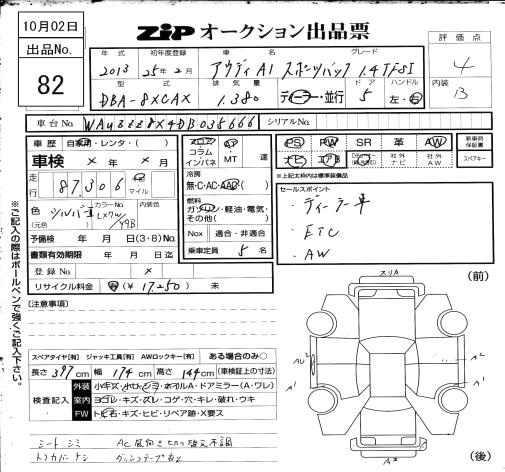 10月02日
出品No.
82
ZIP オークション出品票
評価点
4
内装
B
年式 初年度登録 車名 グレード
2013 25年2月 アウディA1 スポーツバック 1.4 TFSI
型式 排気量 ドア ハンドル
DBA-8XCAX 1.380 ディーラー・並行 5 左・右
車台No. WAUZZZ8X4DB035666 シリアルNo.
車歴 自家用・レンタ・( )
車検 × 年 × 月
走行 87,306 km マイル
色 シルバー カラーNo. LX7W/Y9B 内装色
(元色 )
予備検 年 月 日(3・8)No.
書類有効期限 年 月 日迄
登録No. ×
リサイクル料金 済(¥ 17.250 ) 未
フロア AT
コラム
インパネ MT 速
冷房
無・C・AC・AAC( )
燃料
ガソリン・軽油・電気・
その他( )
Nox 適合・非適合
乗車定員 5 名
PS PW SR 革 AW
ナビ エアB 社外ナビ 社外AW
新車時保証書
スペアキー
※上記太枠内は標準装備品
セールスポイント
・ディーラー車
・ETC
・AW
※ご記入の際はボールペンで強くご記入下さい。
[注意事項]
スペアタイヤ[有] ジャッキ工具[有] AWロックキー[有] ある場合のみ○
長さ 397 cm 幅 174 cm 高さ 144 cm (車検証上の寸法)
検査記入
外装 小キズ・小凹・シミ・ホイルA・ドアミラー(A・ワレ)
室内 ヨゴレ・キズ・スレ・コゲ・穴・キレ・破れ・ウキ
FW トビ石・キズ・ヒビ・リペア跡・X要ス
シートシミ AC風向き切り替え不調
トノカバーナシ
スリA
(前)
AU2
A2
A1
A1
A2
(後)